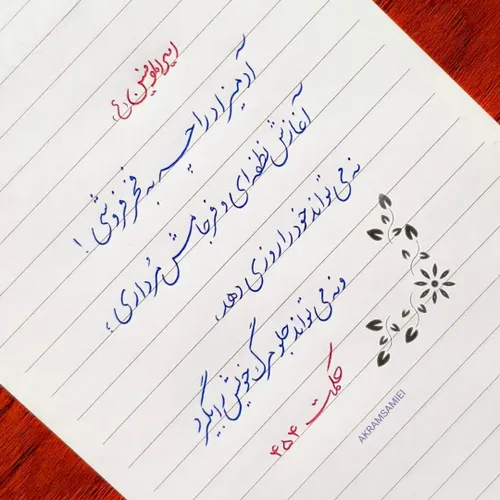 امیرالمومنین(ع)
آدمیزاد را چه به فخرفروشی!
آغازش نطفه‌ای و فرجامش مُرداری،
نه می تواند خود را روزی دهد،
و نه می تواند جلو مرگ خویش را بگیرد
حکمت ۴۵۴
AKRAMSAMIEI